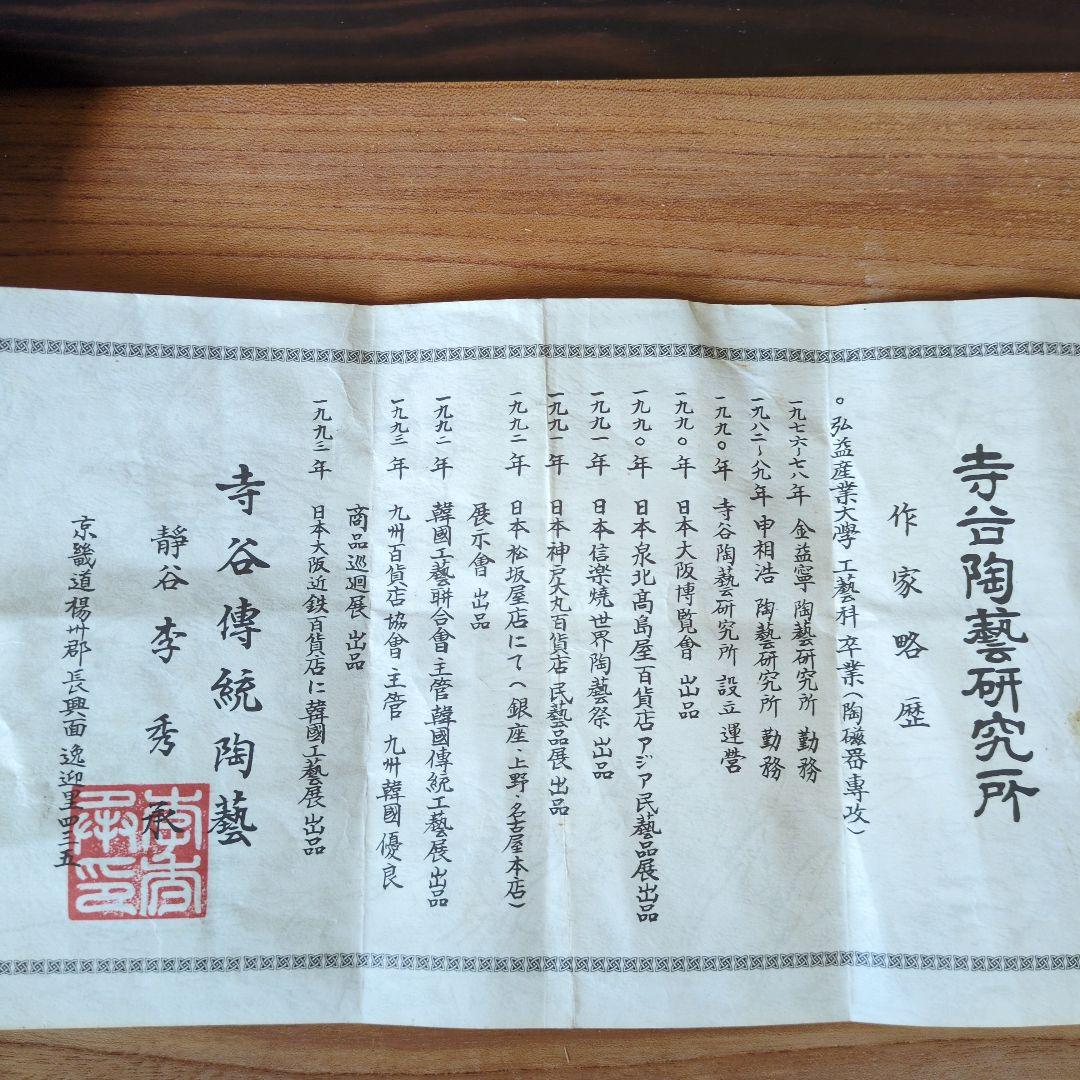 寺谷陶藝研究所
作家略歴
。弘益産業大學 工藝科 卒業(陶磁器専攻)
一九七六~七八年 金益寧 陶藝研究所 勤務
一九八二~八九年 申相浩 陶藝研究所 勤務
一九九〇年 寺谷陶藝研究所 設立運営
一九九〇年 日本大阪博覧會 出品
一九九〇年 日本泉北髙島屋百貨店アジア民藝品展出品
一九九一年 日本信楽焼世界陶藝祭 出品
一九九一年 日本神戸大丸百貨店 民藝品展 出品
一九九二年 日本松坂屋店にて(銀座・上野・名古屋本店)
展示會 出品
一九九二年 韓國工藝聯合會 主管 韓國傳統工藝展 出品
一九九三年 九州百貨店協會 主管 九州韓國優良
商品巡廻展 出品
一九九三年 日本大阪近鉄百貨店に韓國工藝展 出品
寺谷傳統陶藝
靜谷 李秀承
京畿道楊州郡長興面 逸迎里四三五
李秀承印